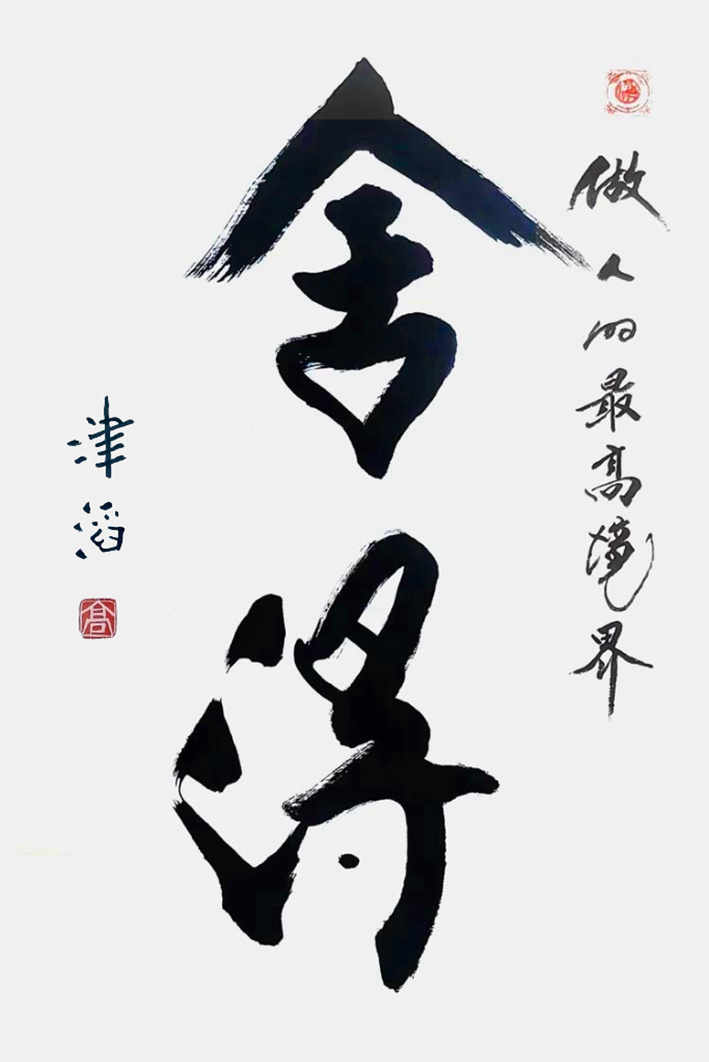 做人的最高境界
舍得
津滔
高